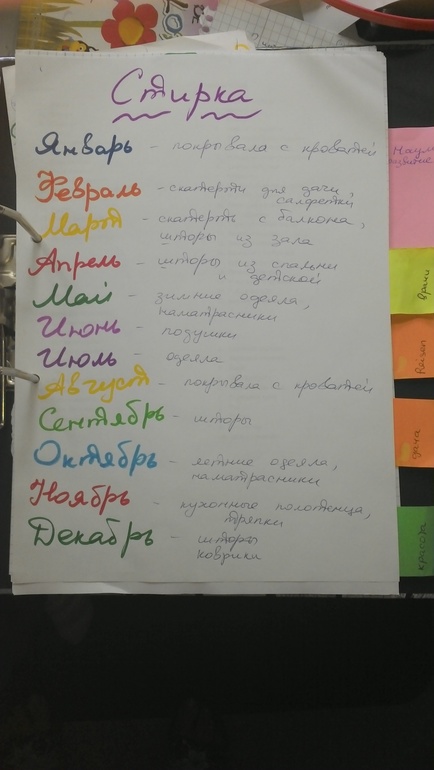 Стирка
Январь - покрывала с кроватей
Февраль - скатерти для дачи,
салфетки
Март - скатерть с балкона,
шторы из зала
Апрель - шторы из спальни
и детской
Май - зимние одеяла,
наматрасники
Июнь - подушки
Июль - одеяла
Август - покрывала с кроватей
Сентябрь - шторы
Октябрь - летние одеяла,
наматрасники
Ноябрь - кухонные полотенца,
тряпки
Декабрь - шторы
коврики
Врачи
Reisen
дача
красота